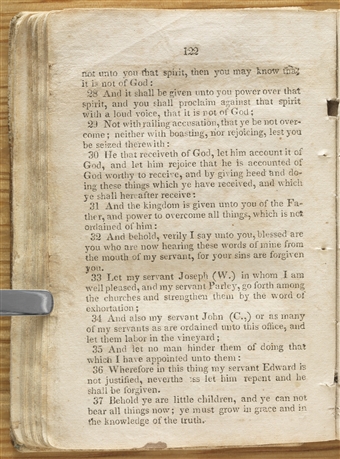 122
not unto you that spirit, then you may know that
it is not of God:
28 And it shall be given unto you power over that
spirit, and you shall proclaim against that spirit
with a loud voice, that it is not of God:
29 Not with railing accusation, that ye be not over-
come; neither with boasting, nor rejoicing, lest you
be seized therewith:
30 He that receiveth of God, let him account it of
God, and let him rejoice that he is accounted of
God worthy to receive, and by giving heed and do-
ing these things which ye have received, and which
ye shall hereafter receive:
31 And the kingdom is given unto you of the Fa-
ther, and power to overcome all things, which is not
ordained of him:
32 And behold, verily I say unto you, blessed are
you who are now hearing these words of mine from
the mouth of my servant, for your sins are forgiven
you.
33 Let my servant Joseph (W.) in whom I am
well pleased, and my servant Parley, go forth among
the churches and strengthen them by the word of
exhortation;
34 And also my servant John (C.,) or as many
of my servants as are ordained unto this office, and
let them labor in the vineyard;
35 And let no man hinder them of doing that
which I have appointed unto them:
36 Wherefore in this thing my servant Edward is
not justified, neverthe ss let him repent and he
shall be forgiven.
37 Behold ye are little children, and ye can not
bear all things now; ye must grow in grace and in
the knowledge of the truth.